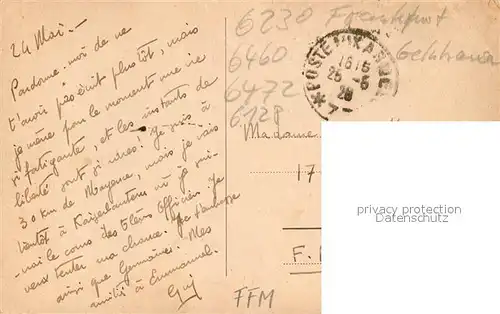 24 Mai.-
Pardonne-moi de ne
t'avoir pas écrit plus tôt, mais
je mène pour le moment une vie
si fatigante, et les instants de
liberté sont si rares! Je suis à
30 km de Mayence, mais je vais
bientôt à Kaiserslautern où je sui-
-vrai le cours des élèves officiers. Je
vais tenter ma chance. Je t'embrasse
ainsi que Germaine. Mes
amitiés à Emmanuel.
Guy
6230 Frankfurt
6460
6472
6128
POSTE
1615
25-5
28
Madame
17
F.
FFM
privacy protection
Datenschutz